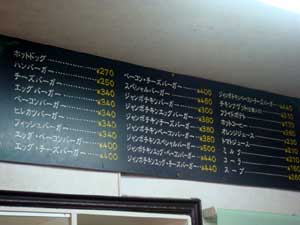 ホットドッグ ¥270
ハンバーガー ¥250
チーズバーガー ¥340
エッグバーガー ¥340
ベーコンバーガー ¥340
ヒレカツバーガー ¥340
フィッシュバーガー ¥340
エッグ・ベーコンバーガー ¥400
エッグ・チーズバーガー ¥400
ベーコン・チーズバーガー ¥400
スペシャルバーガー ¥460
ジャンボチキンバーガー
ジャンボチキンエッグバーガー ¥380
ジャンボチキンチーズバーガー ¥380
ジャンボチキンベーコンバーガー ¥380
ジャンボチキンスペシャル ¥500
ジャンボチキンエッグ・ベーコンバーガー ¥440
ジャンボチキンエッグ・チーズバーガー ¥440
ジャンボチキンベーコン・チーズバーガー ¥440
フライドポテト
オレンジジュース
トマトジュース
ミルク
コーラ
スープ